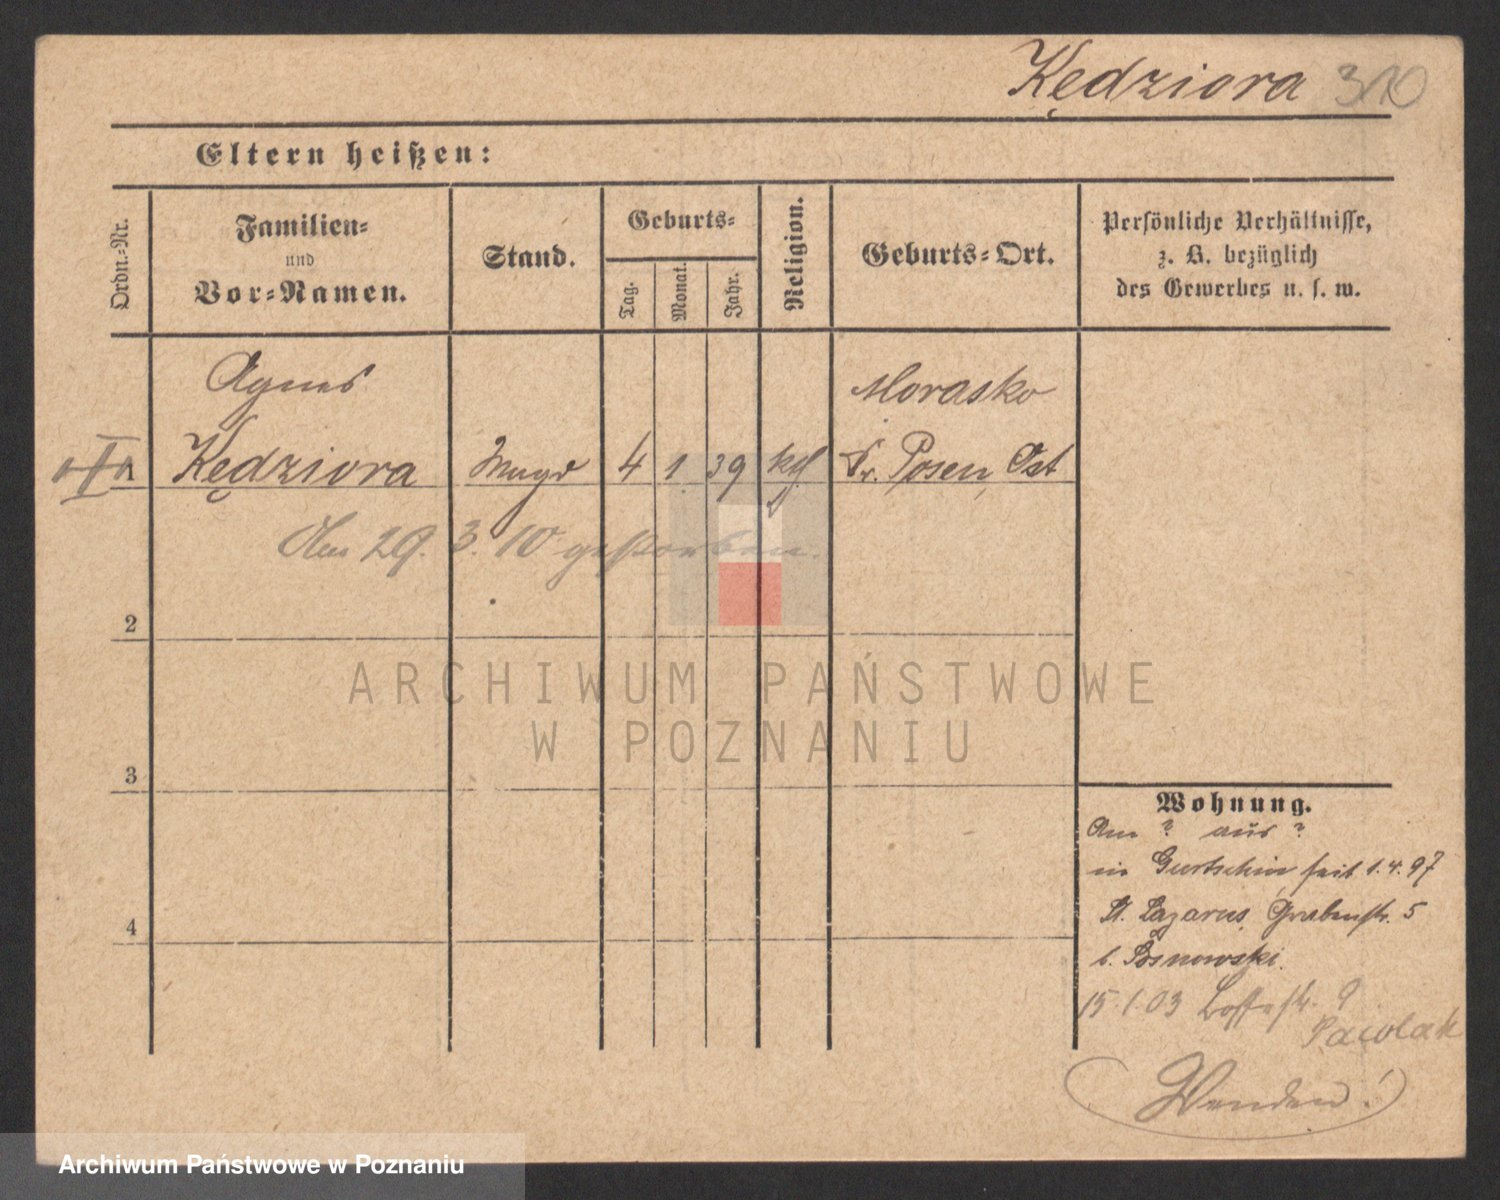 Kędziora 310
Eltern heißen:
Ordn.-Nr.
Familien-
und
Vor-Namen.
Stand.
Geburts-
Tag.
Monat.
Jahr.
Religion.
Geburts-Ort.
Persönliche Verhältnisse,
z. B. bezüglich
des Gewerbes u. s. w.
Agnes
Morasko
1 Kędziora Magd 4 1 39 kth Kr. Posen, Ost
Am 29. 3. 10 gestorben.
2
ARCHIWUM PAŃSTWOWE
W POZNANIU
3
Wohnung.
Am ? aus ?
in Gurtschin seit 1.4.97
St. Lazarus, Grabenstr. 5
b. Sosnowski.
15.1.03 9
Wenden!
4
Archiwum Państwowe w Poznaniu